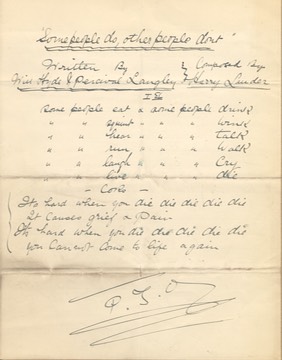 "Some people do, other people dont"
Written By & Composed By
Will Hyde & Percival Langley & Harry Lauder
I st
Some people eat & some people drink
" " squint " " " wink
" " hear " " " talk
" " run " " " walk
" " laugh " " " Cry
" " live " " " die
— Cores —
Its hard when you die die die die die
It Causes grief & Pain
Its hard when you die die die die die
you Cannot Come to life again